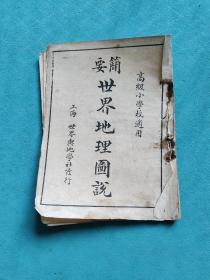 高級小學校適用
簡要
世界地理圖說
上海 世界輿地學社發行